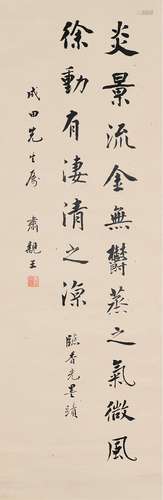 炎景流金無鬱蒸之氣微風
徐動有淒清之涼
臨香光墨蹟
成田先生屬 肅親王